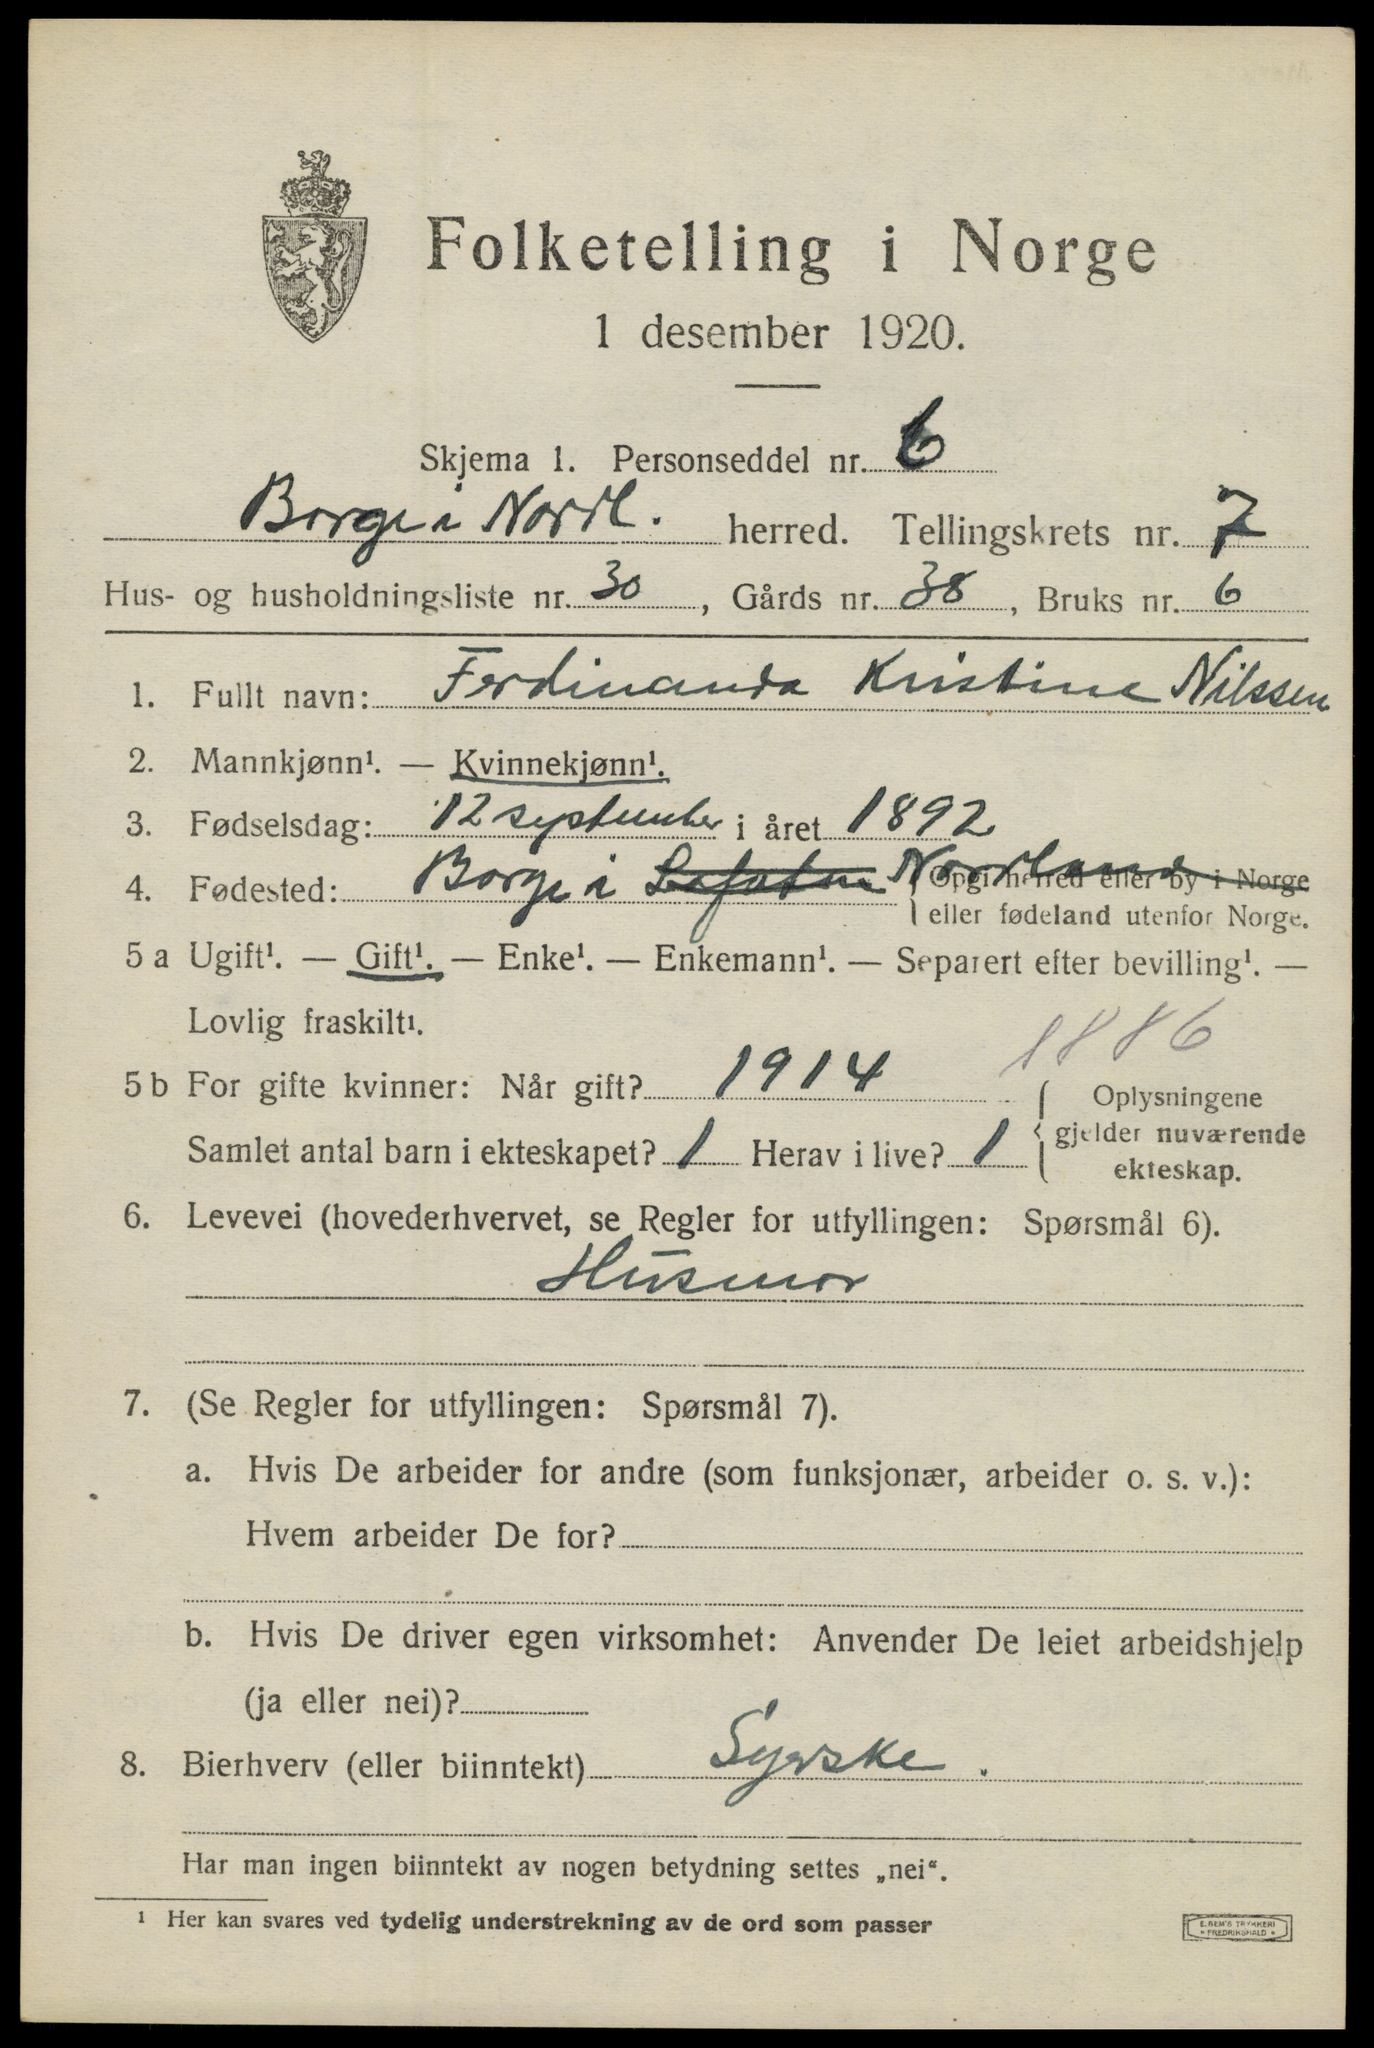 Folketelling i Norge
1 desember 1920.
Skjema 1. Personseddel nr. 6
Borge i Nordl. herred. Tellingskrets nr. 7
Hus- og husholdningsliste nr. 30, Gårds nr. 38, Bruks nr. 6
1. Fullt navn: Ferdinanda Kristine Nilssen
2. Mannkjønn¹. — Kvinnekjønn¹.
3. Fødselsdag: 12 september i året 1892
4. Fødested: Borge i Lofoten Nordland { Opgi herred eller by i Norge
eller fødeland utenfor Norge.
5 a Ugift¹. — Gift¹. — Enke¹. — Enkemann¹. — Separert efter bevilling¹. —
Lovlig fraskilt¹.
1886
5 b For gifte kvinner: Når gift? 1914 { Oplysningene
gjelder nuværende
Samlet antal barn i ekteskapet? 1 Herav i live? 1
ekteskap.
6. Levevei (hovederhvervet, se Regler for utfyllingen: Spørsmål 6).
Husmor
7. (Se Regler for utfyllingen: Spørsmål 7).
a. Hvis De arbeider for andre (som funksjonær, arbeider o. s. v.):
Hvem arbeider De for?
b. Hvis De driver egen virksomhet: Anvender De leiet arbeidshjelp
(ja eller nei)?
8. Bierhverv (eller biinntekt) Syerske.
Har man ingen biinntekt av nogen betydning settes „nei“.
¹ Her kan svares ved tydelig understrekning av de ord som passer
E. SEM'S TRYKKERI
FREDRIKSHALD